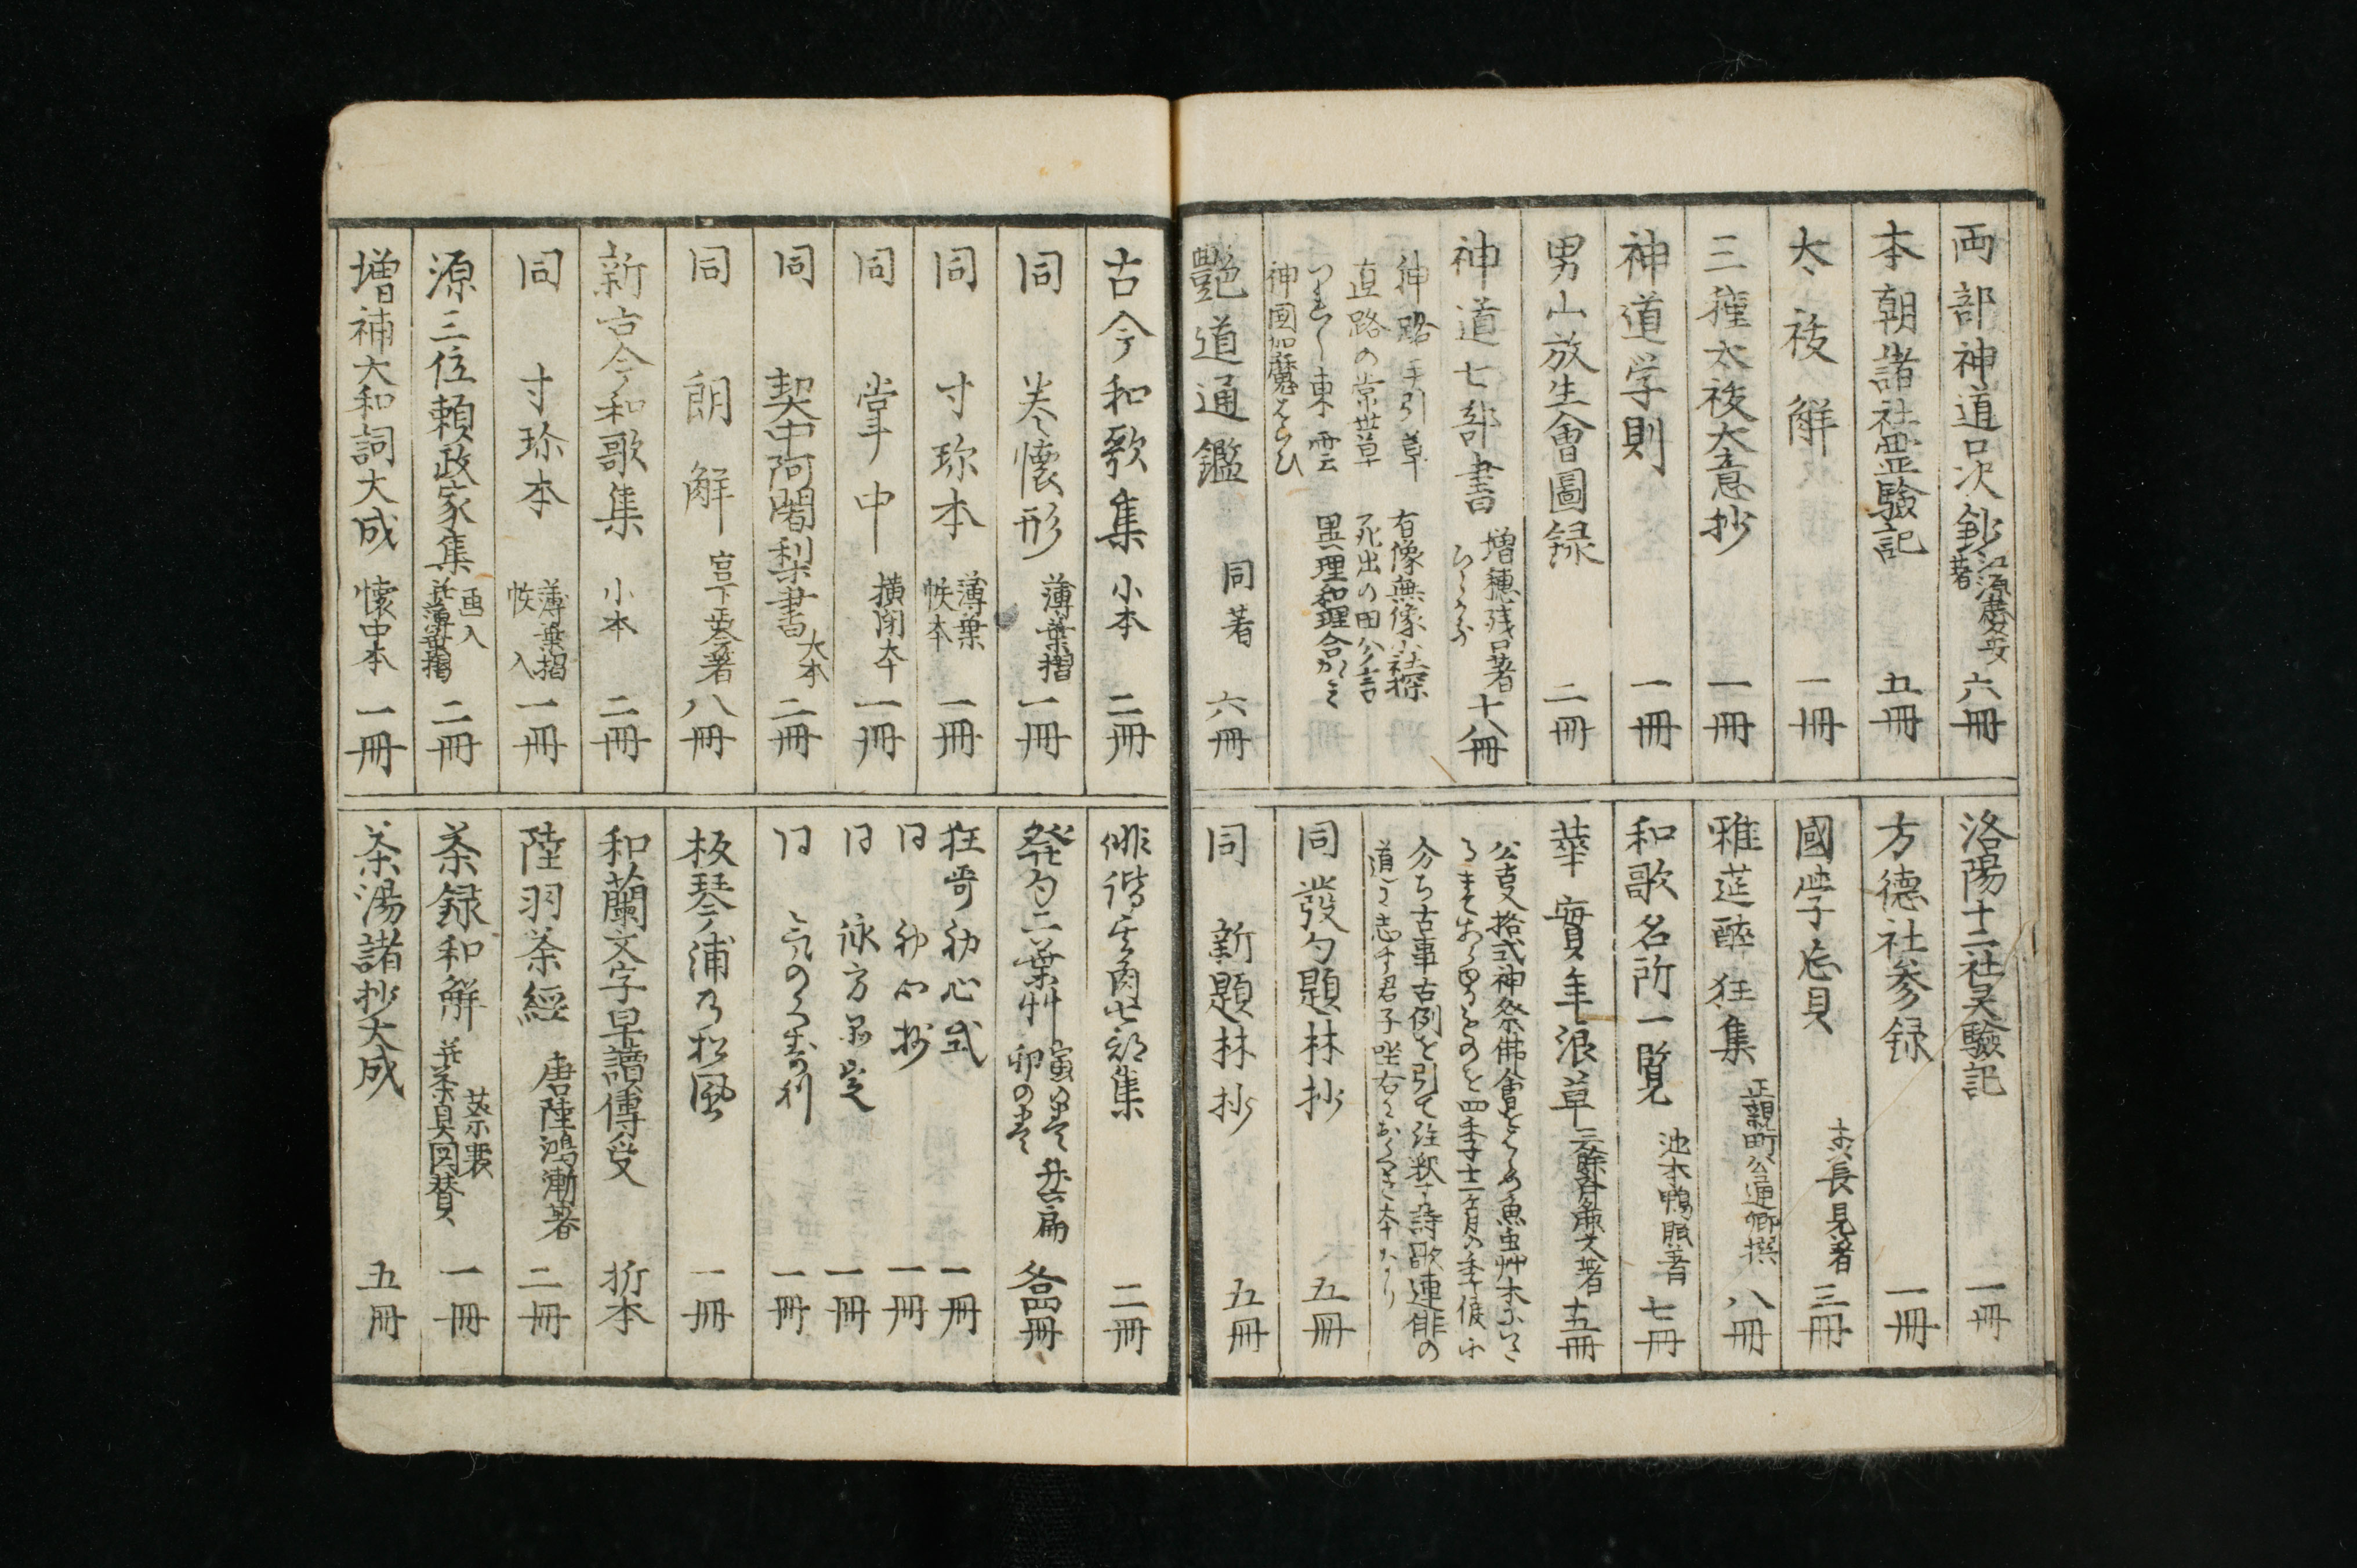 両部神道口决鈔 江源慶安著 六冊
本朝諸社霊験記 五冊
大祓解 一冊
三種太祓大意抄 一冊
神道学則 一冊
男山放生會圖録 二冊
神道七部書 増穂残口著 十八冊
神路手引草 有像無像小社探
直路の常世草 死出の田分言
つれ〳〵東雲 異理和理合かゝみ
神國加魔はらひ
艶道通鑑 同著 六冊
洛陽十二社灵驗記 一冊
方德社参録 一冊
國学忘貝 長見著 三冊
雅莚醉狂集 正親町公通卿撰 八冊
和歌名所一覧 池本鴨眠著 七冊
華實年浪草 三餘斎麁文著 十五冊
分ち古事古例を引て注釈す詩歌連俳の
道に志す君子座右に
同發句題林抄 五冊
同 新題林抄 五冊
古今和歌集 小本 二冊
同 巻懐形 薄葉摺 一冊
同 寸珎本 薄葉帙本 一冊
同 掌中 横閉本 一冊
同 契中阿闍梨書 大本 二冊
同 朗解 宮下 著 八冊
新古今和歌集 小本 二冊
同 寸珎本 薄葉摺帙入 一冊
源三位頼政家集 画入 并薄葉摺 二冊
増補大和詞大成 懐中本 一冊
俳諧 集 二冊
發句二葉艸 寅の巻 卯の巻 各四冊
狂哥初心式 一冊
同 初心抄 一冊
同 詠方 一冊
同 一冊
板琴浦乃松風 一冊
和蘭文字早讀傳受 折本
陸羽茶經 唐陸鴻漸著 二冊
茶録和解 蔡襄 并茶具図賛 一冊
茶湯諸抄大成 五冊